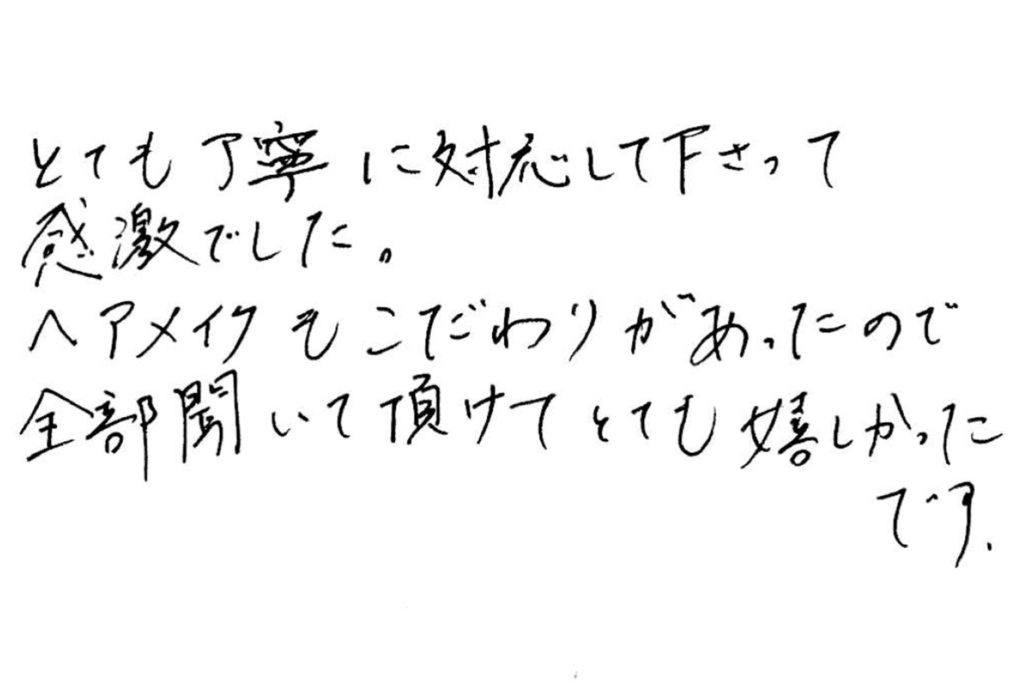 とても丁寧に対応して下さって
感激でした。
ヘアメイクもこだわりがあったので
全部聞いて頂けてとても嬉しかった
です.